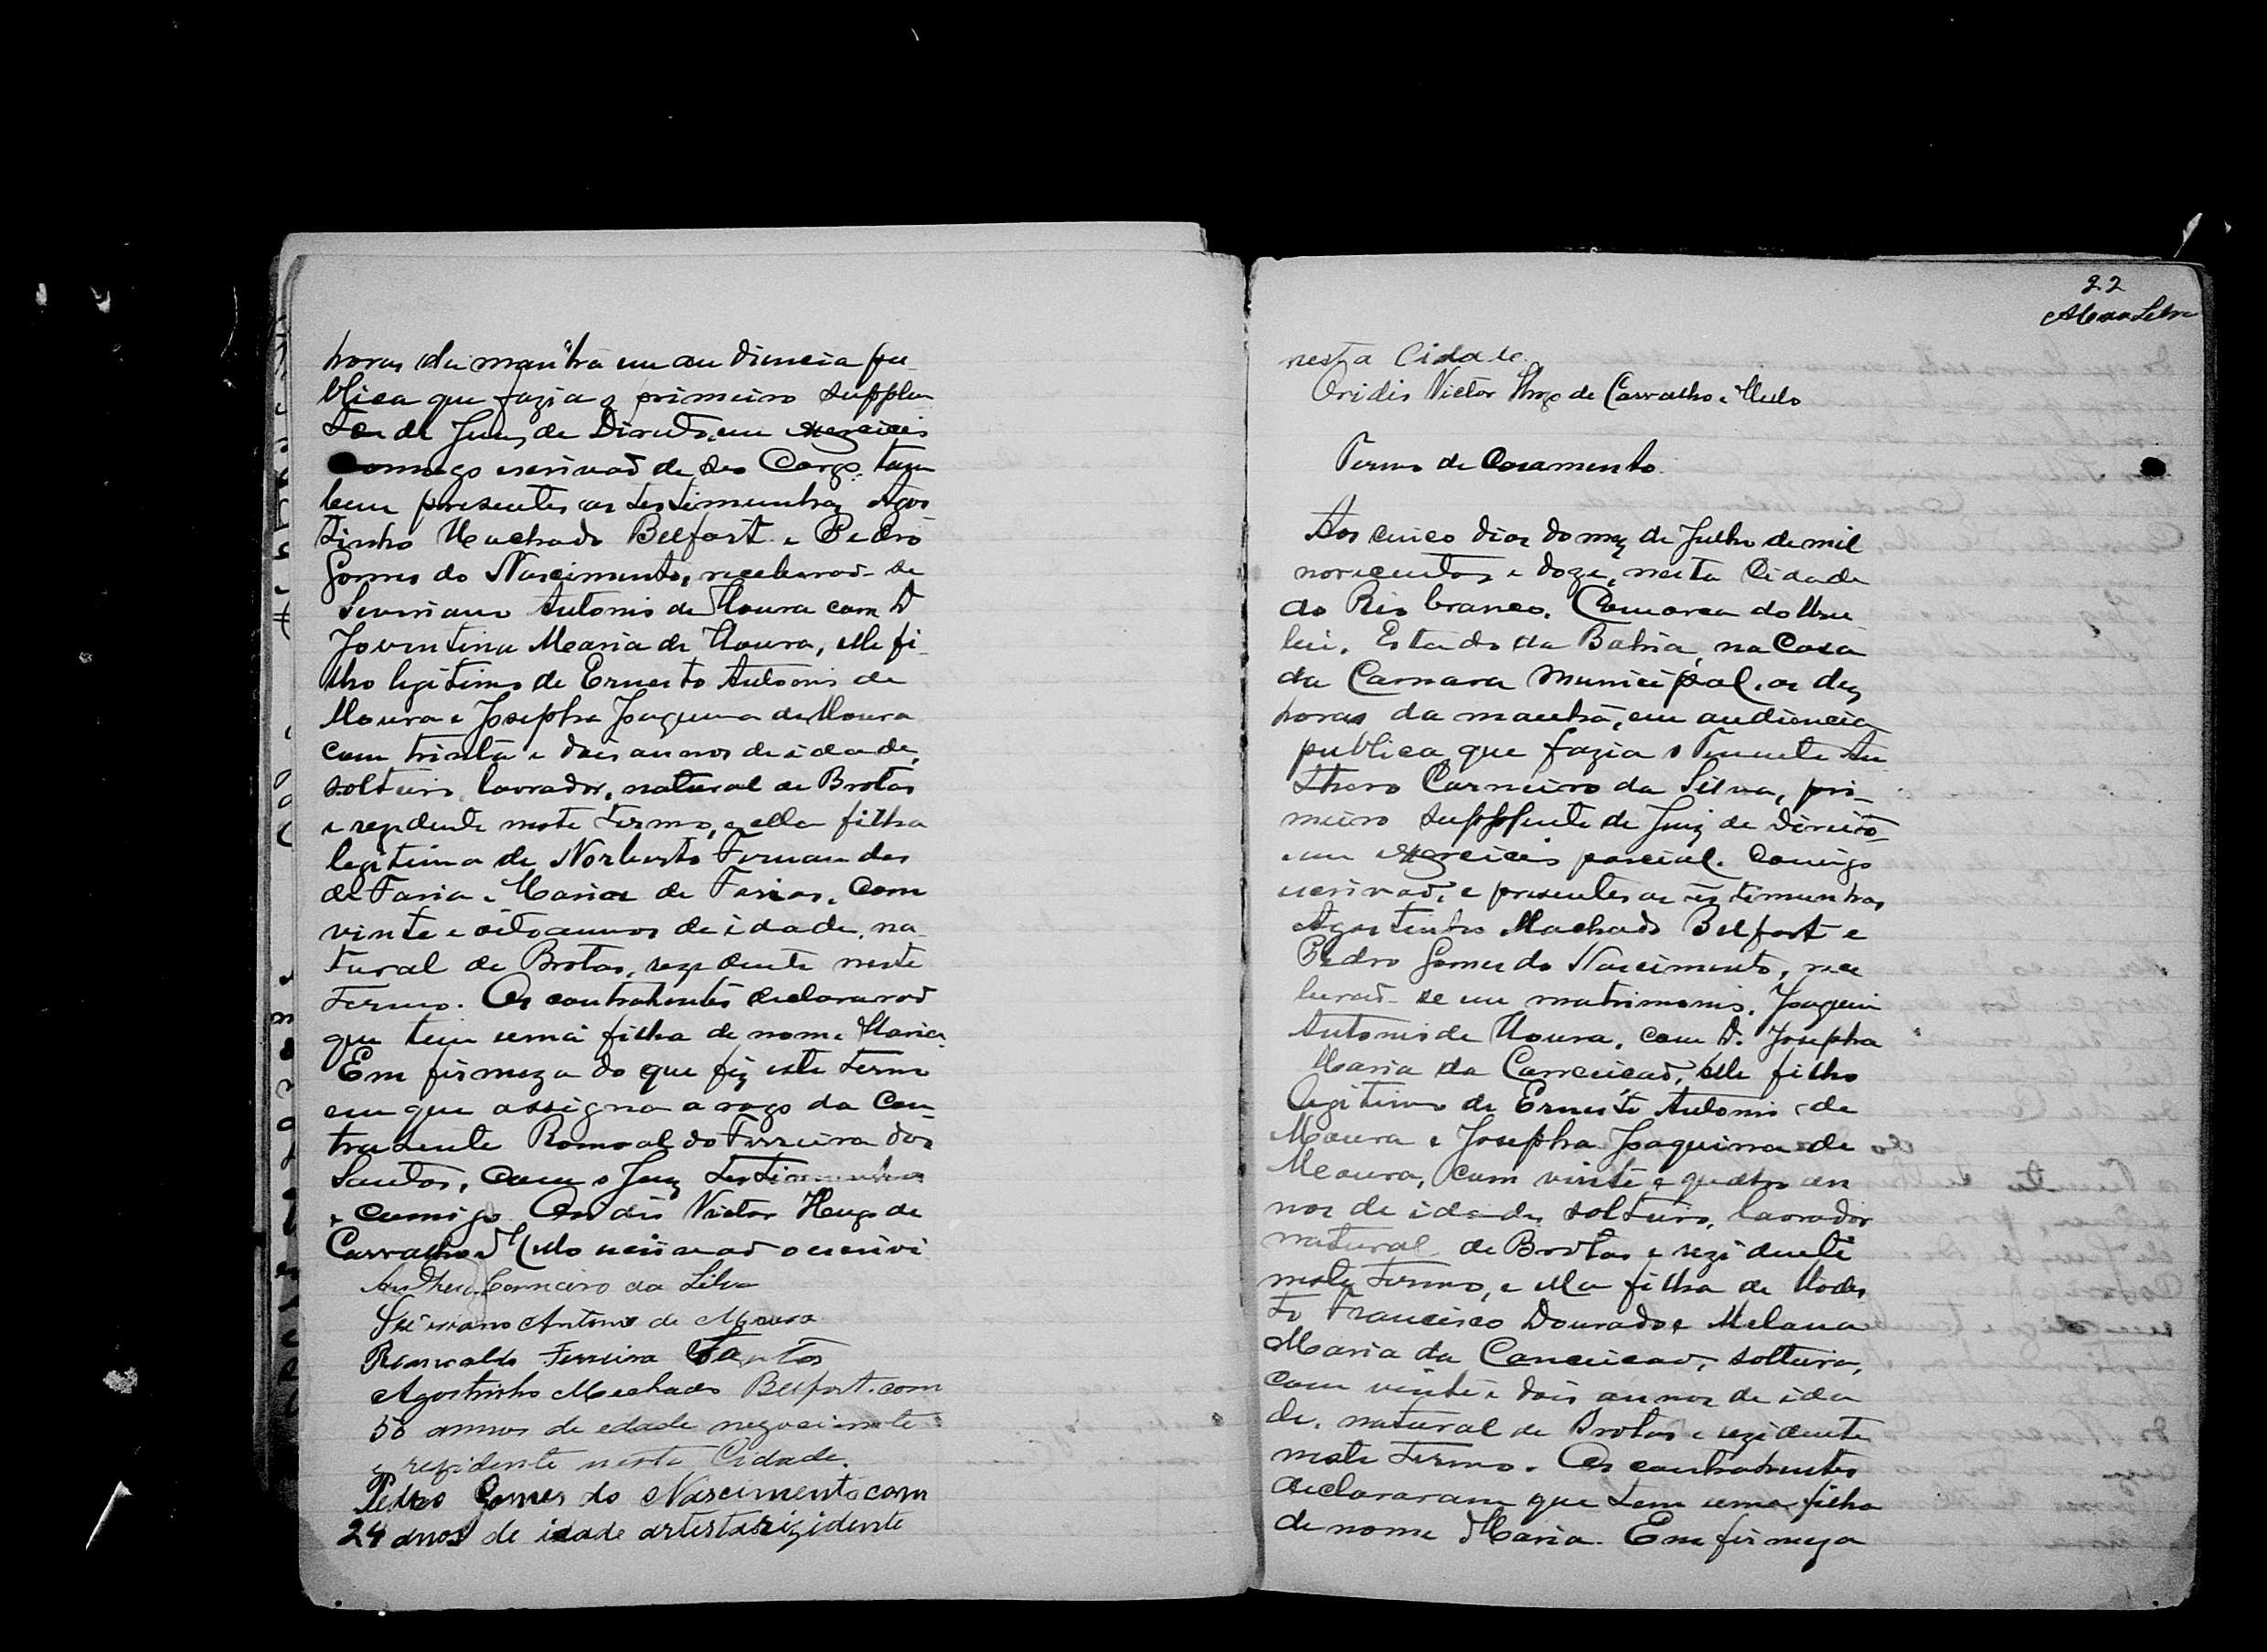 horas da manhã em audiencia pu-
blica que fazia o primeiro supplen
te de Juiz de Direito, em exercicio
commego escrivaõ de seo Cargo, tam
bem presentes as testimunhas Agos
tinho Machado Belfort e Pedro
Gomes do Nascimento, receberaõ-se
Severiano Antonio de Moura com D
Joventina Maria de Moura, elle fi-
lho legitimo de Ernesto Antonio de
Moura e Josepha Joaquina de Moura
com trinta e dois annos de idade,
solteiro, lavrador, natural de Brotas
e rezidente neste termo, e ella filha
legitima de Norberto Fernandes
de Faria e Maria de Farias, com
vinte e oito annos de idade, na-
tural de Brotas, rezidente neste
Termo. Os contrahentes declararaõ
que tem uma filha de nome Maria
Em firmeza do que fiz este termo
em que assigna a rogo da Con-
trahente Romoaldo Ferreira dos
Santos, com o Juiz testimunhas
e comigo Victor Hugo de
Carvalho e Mello escrivaõ o escrivi
Anthero Carneiro da Silva
Severiano Antonio de Moura
Romualdo Ferreira Santos
Agostinho Machado Belfort. com
50 annos de edade negociante
e rezidente nesta Cidade.
Pedro Gomes do Nascimento com
24 anos de idade artista rizidente
22
nesta Cidade
Victor Hugo de Carvalho e Mello
Termo de Casamento.
Aos cinco dias do mez de Julho de mil
novecentos e doze, nesta Cidade
do Rio branco, Comarca do Uru
bú, Estado da Bahia, na Casa
da Camara Municipal, as dez
horas da manhã, em audiencia
publica que fazia o Tenente An
thero Carneiro da Silva, pri-
meiro supplente de Juiz de Direito
em exercicio parcial. Comigo
escrivaõ, e presentes as testimunhas
Agostinho Machado Belfort e
Pedro Gomes do Nascimento, rece
beraõ-se em matrimonio. Joaquim
Antonio de Moura, com D. Josepha
Maria da Conceicaõ, elle filho
legitimo de Ernesto Antonio de
Moura e Josepha Joaquina de
Moura, com vinte e quatro an
nos de idade, solteiro, lavrador
natural de Brotas e rezidente
neste termo, e ella filha de Modes
to Francisco Dourado e
Maria da Conceicaõ, solteira,
com vinte e dois annos de ida
de, natural de Brotas e rezidente
neste termo. Os contrahentes
declararam que tem uma filha
de nome Maria. Em firmeza